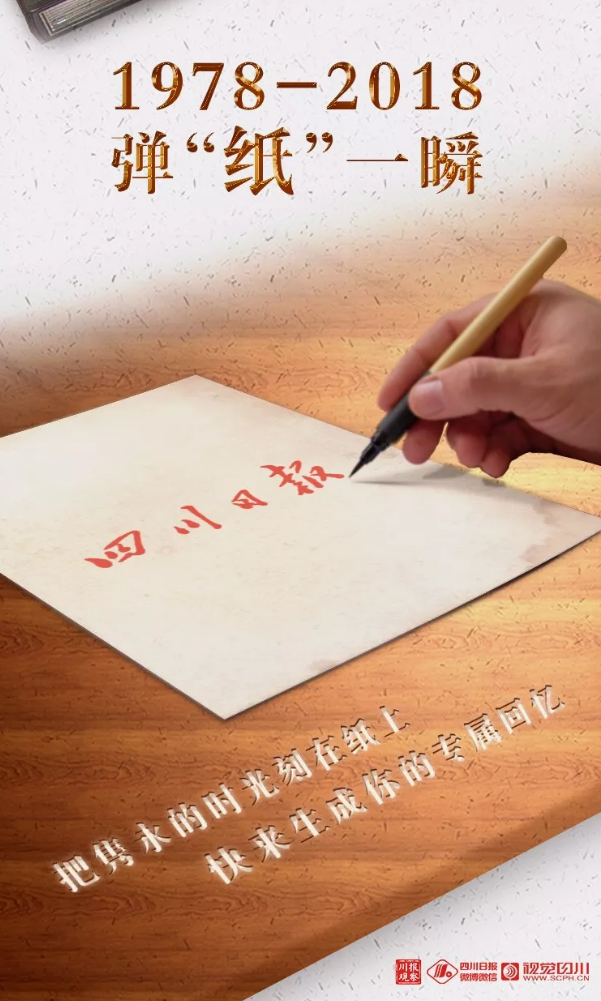 1978-2018
弹“纸”一瞬
四川日报
把隽永的时光刻在纸上
快来生成你的专属回忆
川报
观察
四川日报
微博微信
视觉四川
WWW.SCPH.CN